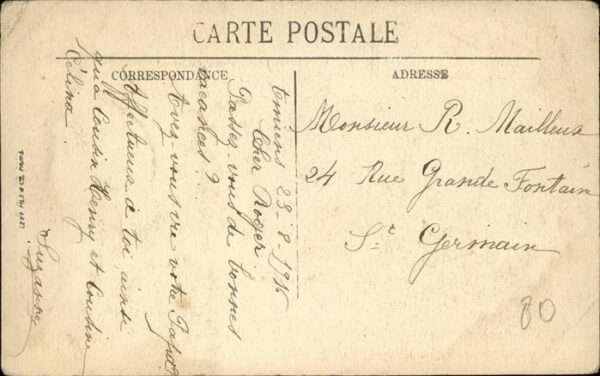 CARTE POSTALE
CORRESPONDANCE
ADRESSE
Amiens 23-8-1915
Cher Roger
Passez-vous de bonnes
vacances ?
Avez-vous vu votre Papa ?
Affectueux à toi ainsi
qu'à Cousin Henry et Cousine
Célina.
Suzanne
Monsieur R. Mailleux
24 Rue Grande Fontain
St Germain
80